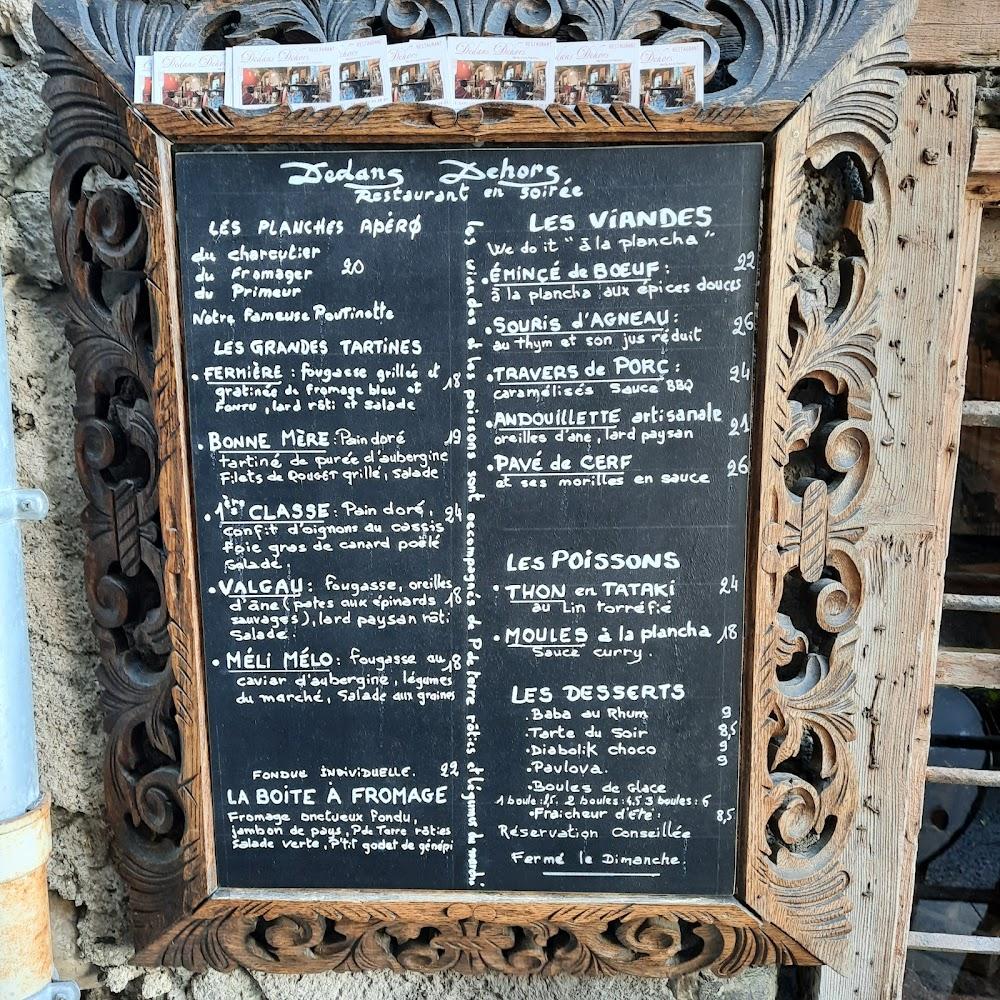 Dedans Dehors
RESTAURANT
Dedans Dehors
RESTAURANT
RESTAURANT
Dedans Dehors
RESTAURANT
Dedans Dehors
RESTAURANT
Dedans Dehors
RESTAURANT
Dedans Dehors
Dedans Dehors
Restaurant en soirée
LES PLANCHES APÉRO
du charcutier
du Fromager 20
du Primeur
Notre Fameuse Poutinette
LES GRANDES TARTINES
• FERMIÈRE : fougasse grillée et
gratinée de fromage bleu et 18
Fontu, lard rôti et Salade
• BONNE MÈRE : Pain doré 19
tartiné de purée d'aubergine
Filets de ROUGET grillé, salade
• 1ère CLASSE : Pain doré, 24
confit d'oignons au cassis
foie gras de canard poêlé
Salade
• VALGAU : fougasse, oreilles
d'âne (pates aux épinards 18
sauvages), lard paysan rôti
Salade.
• MÉLI MÉLO : fougasse au 18
caviar d'aubergine, légumes
du marché, Salade aux graines
FONDUE INDIVIDUELLE. 22
LA BOITE À FROMAGE
Fromage onctueux Fondu,
jambon de pays, P de Terre rôties
Salade verte, P'tit godet de génépi
les viandes et les poissons sont accompagnés de P de terre rôties et légumes du marché
LES VIANDES
We do it "à la plancha"
• ÉMINCÉ de BŒUF : 22
à la plancha aux épices douces
• SOURIS d'AGNEAU : 26
au thym et son jus réduit
• TRAVERS de PORC : 24
caramélisés Sauce BBQ
• ANDOUILLETTE artisanale
oreilles d'ane, lard paysan 21
• PAVÉ de CERF
et ses morilles en sauce 26
LES POISSONS
• THON en TATAKI 24
au Lin torréfié
• MOULES à la plancha 18
Sauce curry.
LES DESSERTS
• Baba au Rhum 9
• Tarte du Soir 8,5
• Diabolik choco 9
• Pavlova. 9
• Boules de Glace
2 boules : 4,5 3 boules : 6
• Fraicheur d'été : 8,5
Réservation Conseillée
Fermé le Dimanche.